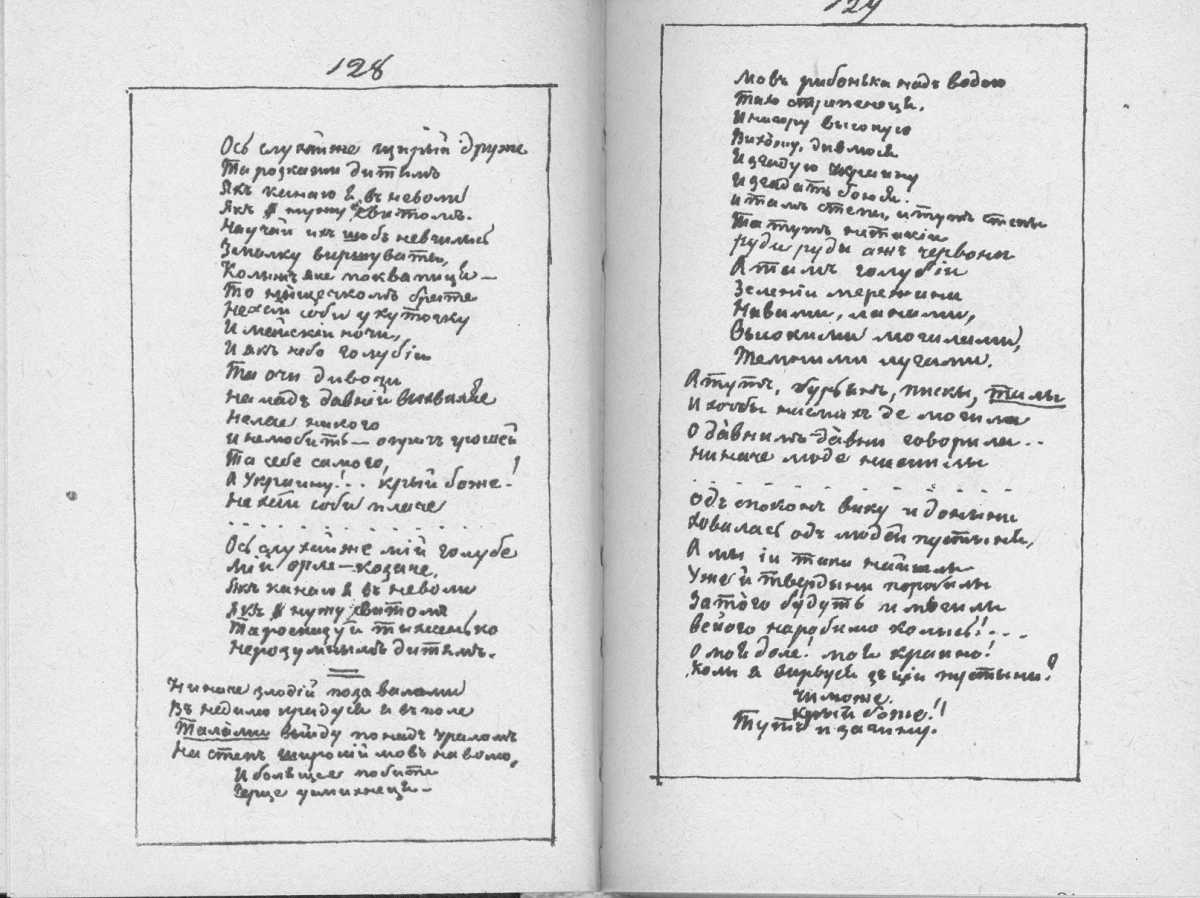 128
Ось слухайже щирый друже
Та розкажи дитямъ
Якъ караюся въ неволи
Якъ я нужу свитомъ.
Научай ихъ щобъ невчились
Змалку виршувати,
Колыжъ яке поквапиця —
То нышечкомъ брате
Нехай соби у куточку
И
И якъ небо голубіи
Та очи
нелае никого
И нелюбить — опричъ
Та себе самого,
А Украину!.. крый боже!
Нехай соби плаче
Ось слухайже мій голубе
Мій орле — козаче,
Якъ караюсь я въ неволи
Якъ я нужу свитомъ
Та
Нерозумнымъ дитямъ.
Ниначе злодій поза валами
Въ недилю крадуся я въ поле
Талами выйду понадъ Ураломъ
На степъ широкій мовъ на волю,
И болящее побите
Серце усмихнеця —
129
Мовъ рибонька надъ водою
Тихо стрепенеця.
И на гору высокую
Вихожу, дивлюся
И згадую Украину
И згадать боюся.
И тамъ степы, и тутъ степы
Та тутъ нетакіи
руди руди ажъ червоны
А тамъ голубіи
Зеленіи мережани
Нивами, ланами,
Высокими могилами,
Темними лугами.
А тутъ, бурьянъ, пискы, талы
И хочбы насмихъ де могила
О давнимъ-давни говорила..
Ниначе люде нежили
Одъ спокону вику и донини
Ховалась одъ людей пустыня,
А мы іи таки найшли
Уже й твердыни поробили
Затого будуть и могилы
Всёго наробимо колысь!...
О моя доле! моя краино!
Коли я вирвуся зъ ціи пустыни?
Чи може.
Крый боже!!
Тутъ и загину.